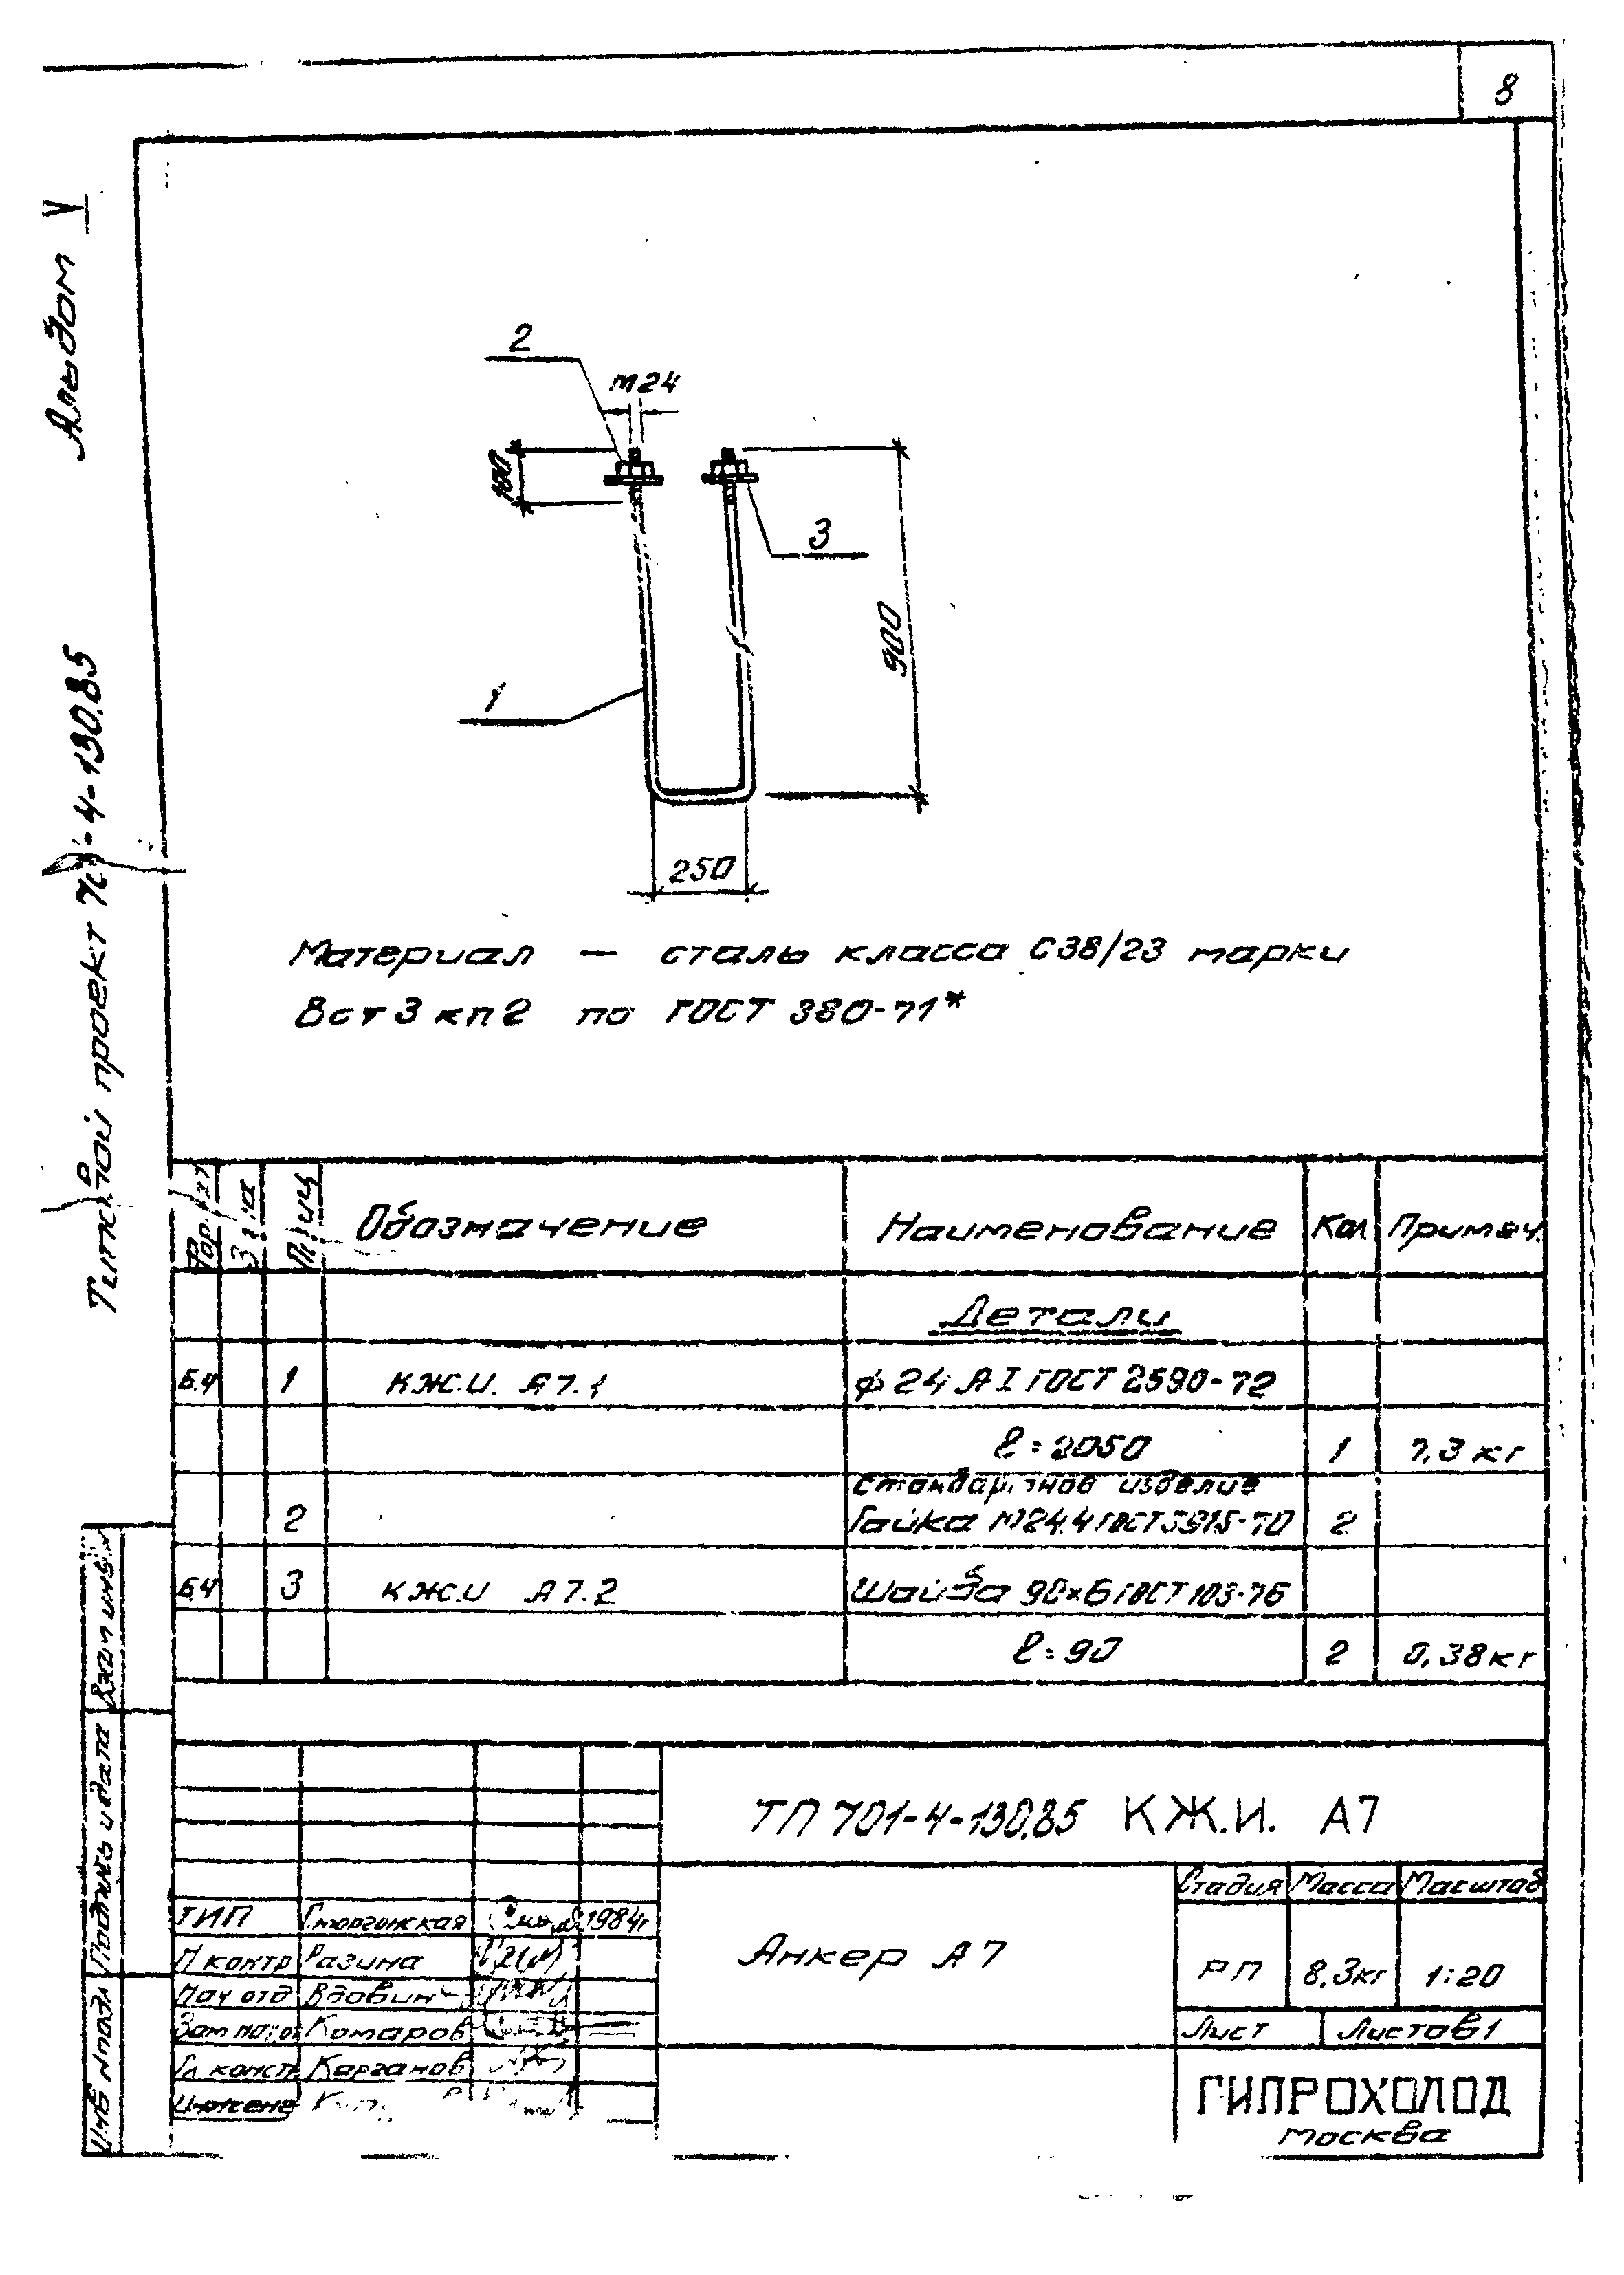 8
Альбом V
Типовой проект 701-4-130.85
2
М24
100
3
900
1
250
Материал — сталь класса С38/23 марки
Вст3кп2 по ГОСТ 380-71*
Обозначение Наименование Кол Примеч.
Детали
Б.ч 1 КЖ.И. А7.1 ф 24 АI ГОСТ 2590-72
ℓ = 2050 1 7,3 кг
Стандартное изделие
2 Гайка М24.4 ГОСТ 5915-70 2
Бч 3 КЖ.И А7.2 Шайба 90×6 ГОСТ 103-76
ℓ = 90 2 0,38 кг
Взам инв
Подпись и дата
Инв № подл
ТП 701-4-130.85 КЖ.И. А7
Стадия Масса Масштаб
ГИП 1984г
Н контр Разина
Анкер А7
РП 8,3кг 1:20
Нач отд Вдовин
Комаров
Лист Листов 1
Гл констр Карганов
ГИПРОХОЛОД
Москва